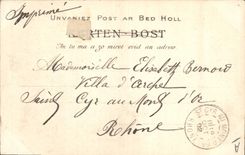 Imprimé
UNVANIEZ POST AR BED HOLL
KARTEN-BOST
An tu ma a zo miret evid an adres.
Mademoiselle Elisabeth Bernard
Villa d'Arche
Saint Cyr au Mont d'Or
Rhône